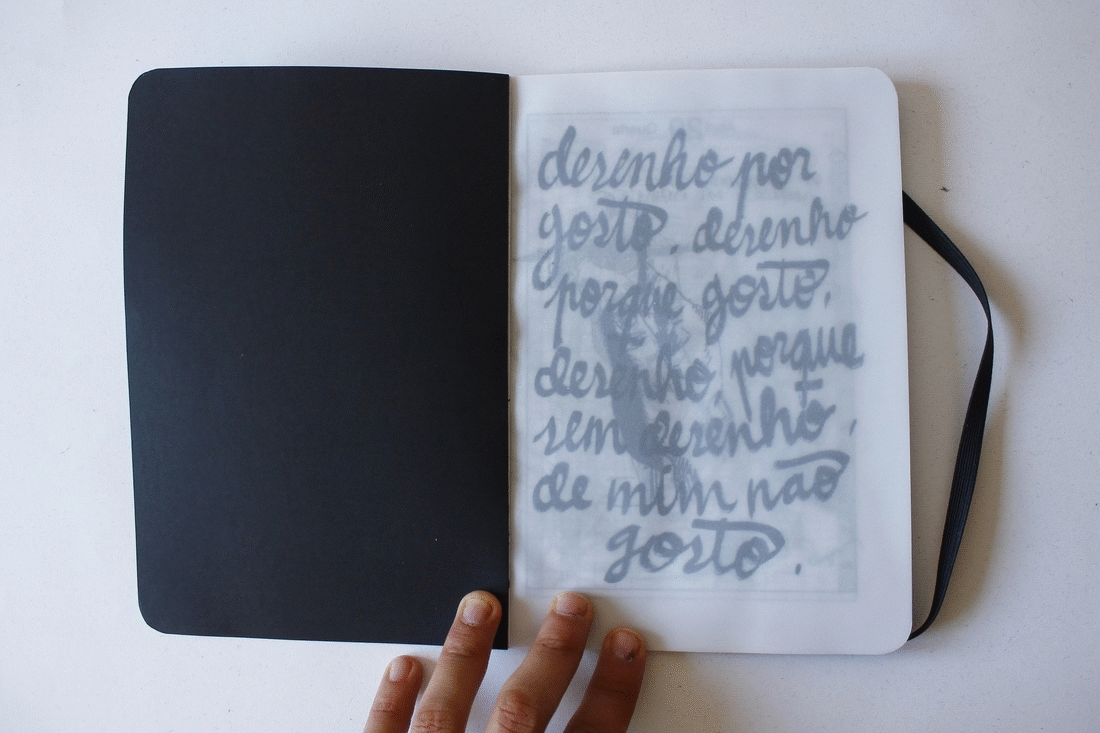 desenho por
gosto. desenho
porque gosto.
desenho, porque
sem desenho,
de mim não
gosto.